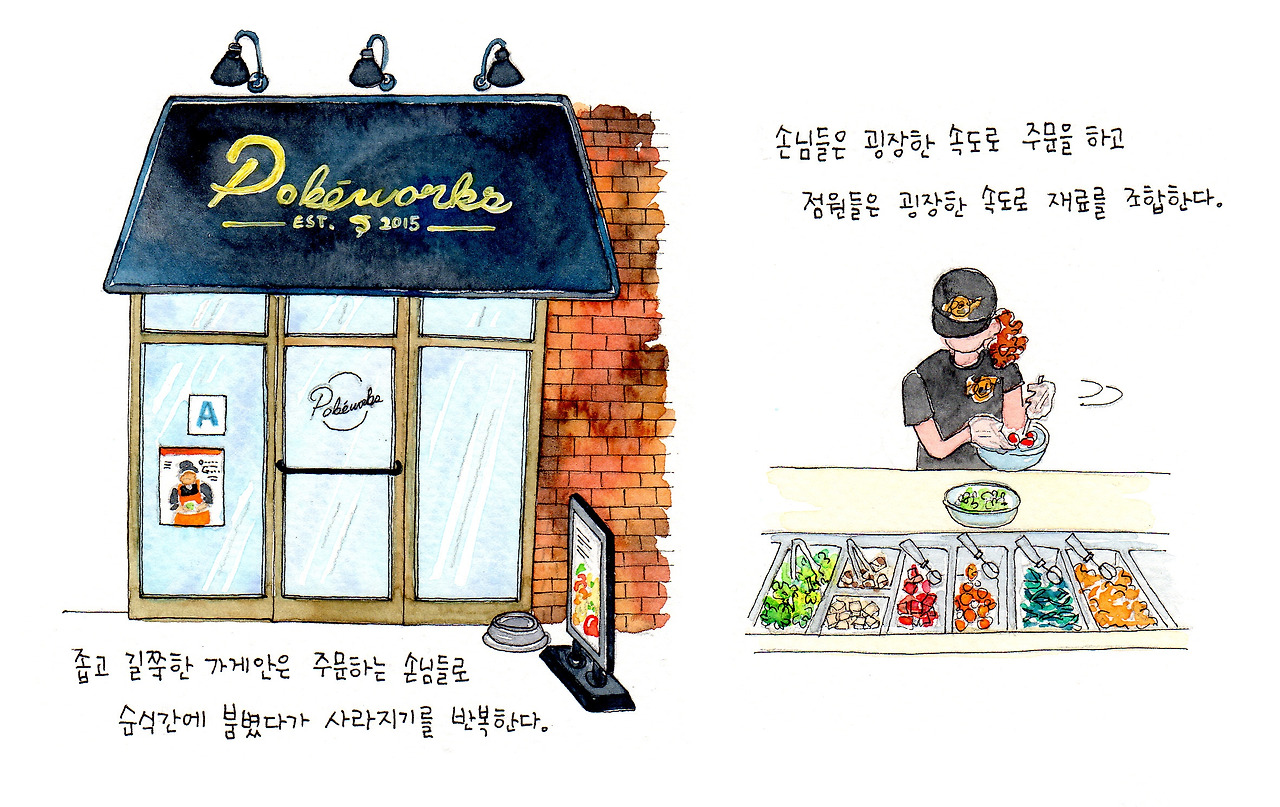 Pokéworks
EST. 2015
A
Pokéworks
좁고 길쭉한 가게안은 주문하는 손님들로
순식간에 붐볐다가 사라지기를 반복한다.
손님들은 굉장한 속도로 주문을 하고
점원들은 굉장한 속도로 재료를 조합한다.